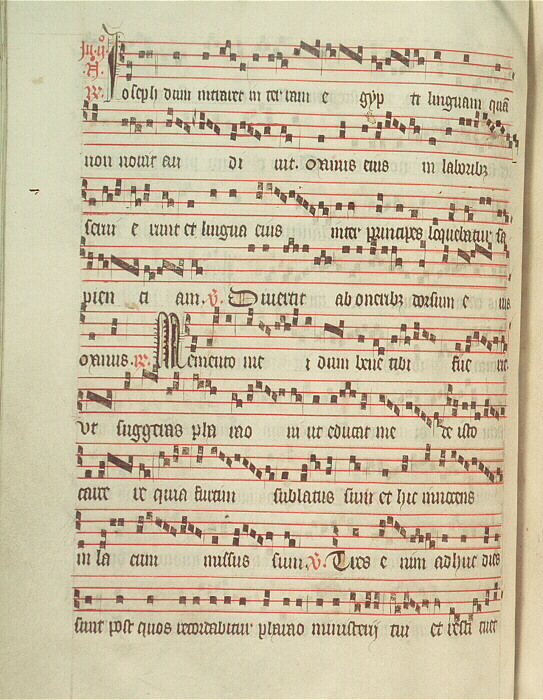 R. Ioseph dum intraret in terram e gyp ti linguam quã
non nouit au di uit. Manus eius in laboribz
serui e runt et lingua eius inter principes loquebatur sa
pien ti am. V. Diuertit ab oneribz dorsum e ius
Manus. R. Memento me i dum bene tibi fue rit
vt suggeras pha rao ni ut educat me de isto
carce re quia furtim sublatus sum et hic innocens
in la cum missus sum. V. Tres e nim adhuc dies
sunt post quos recordabitur pharao ministerij tui et resti tuet